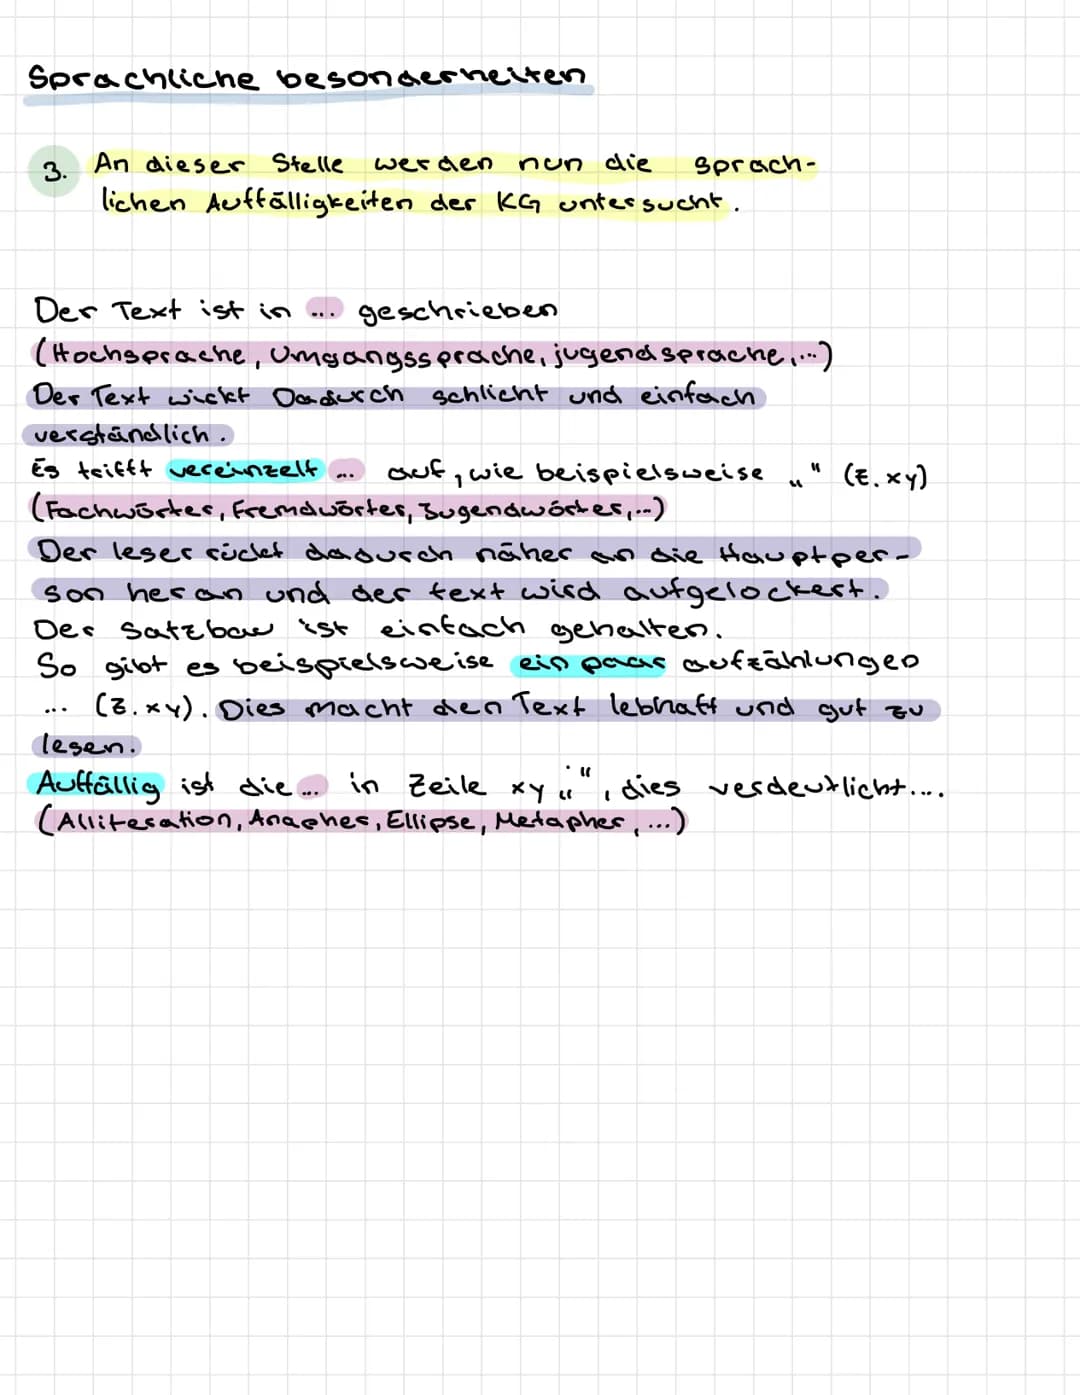 Sprachliche besonderheiten
3. An dieser Stelle werden nun die sprach-
lichen Auffälligkeiten der KG untersucht.
Der Text ist in ... geschrieben
(Hochsprache, Umgangssprache, jugendsprache,...)
Der Text wirkt Dadurch schlicht und einfach
verständlich.
Es trifft vereinzelt ... auf, wie beispielsweise „" (Z. xy)
(Fachwörter, Fremdwörter, Jugendwörter,...)
Der leser rückt dadurch näher an die Hauptper-
son heran und der text wird aufgelockert.
Der Satzbau ist einfach gehalten.
So gibt es beispielsweise ein paar aufzählungen
... (Z. xy). Dies macht den Text lebhaft und gut zu
lesen.
Auffällig ist die ... in Zeile xy „", dies verdeutlicht....
(Alliteration, Anapher, Ellipse, Metapher, ...)